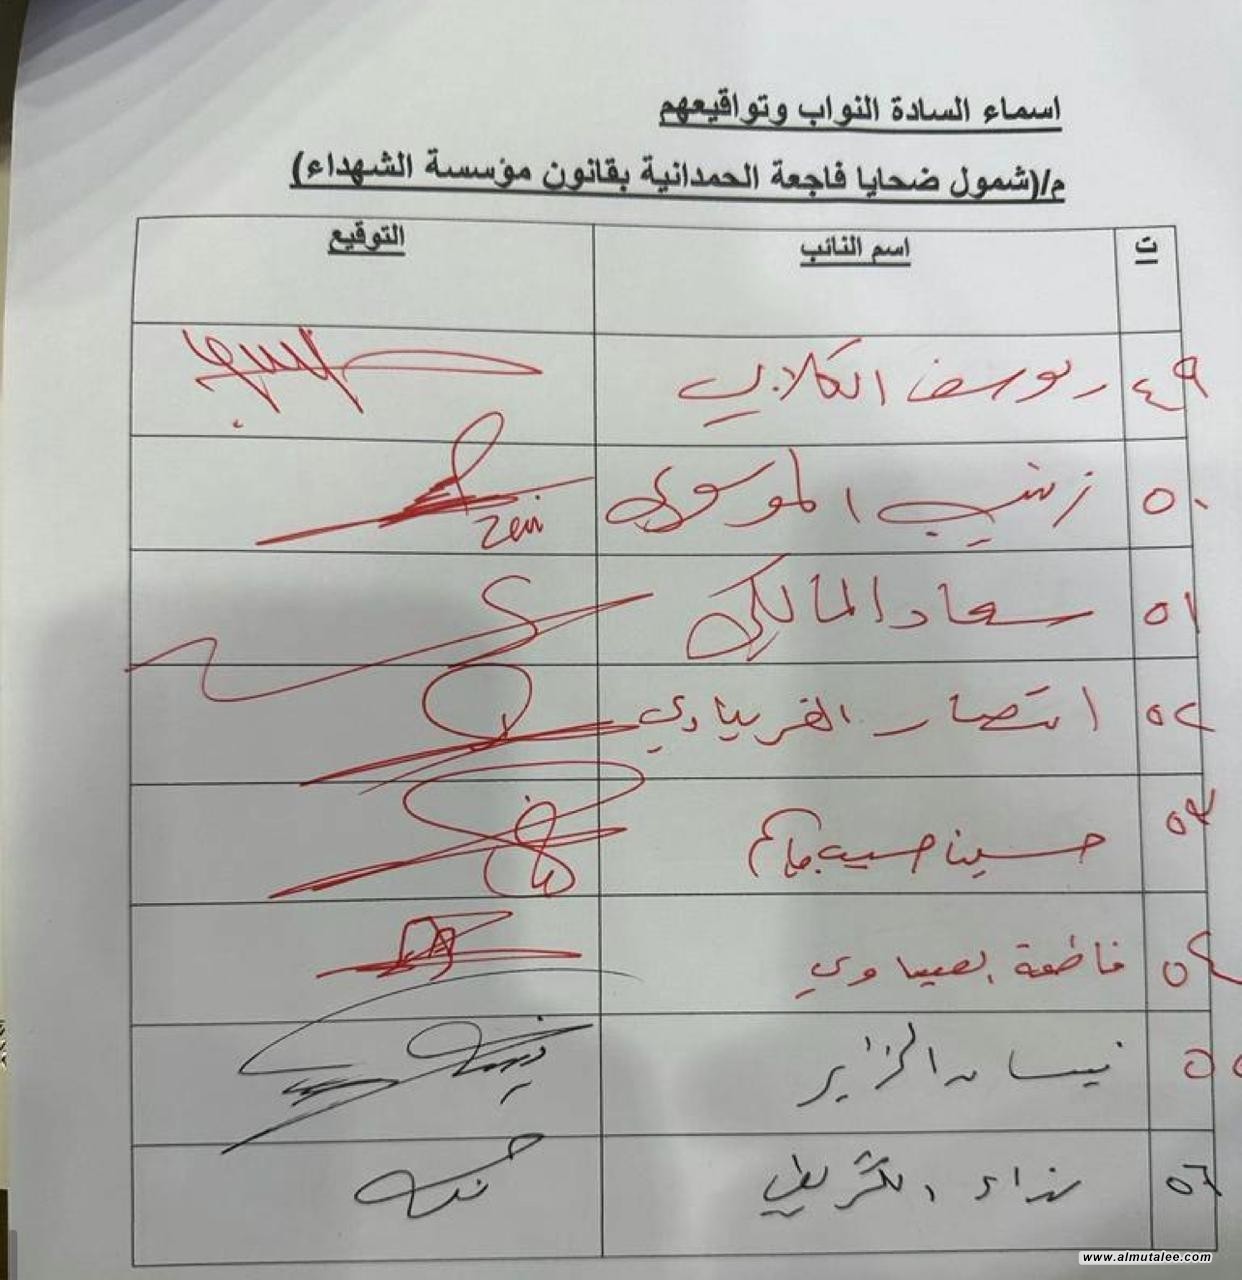 اسماء السادة النواب وتواقيعهم
م/(شمول ضحايا فاجعة الحمدانية بقانون مؤسسة الشهداء)
ت اسم النائب التوقيع
٤٩ يوسف الكلابي
٥٠ زينب الموسوي
zen
٥١ سعاد المالكي
٥٢ انتصار الغريباوي
٥٣ حسين حبيب
٥٤ فاطمة العيساوي
٥٥ نيسان الزاير
٥٦ نداء
www.almutalee.com